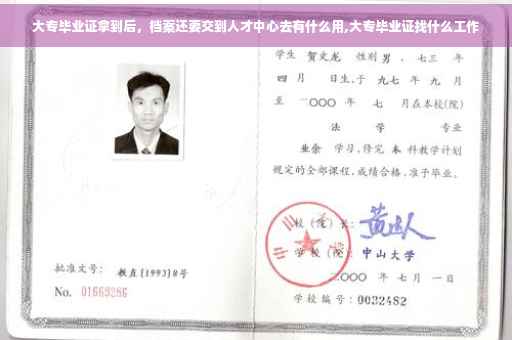 大专毕业证拿到后，档案还要交到人才中心去有什么用,大专毕业证找什么工作
学生 贺文龙 性别男、七三 年
四 月 日生,于 九七 年 九 月
至 二〇〇〇 年 七 月在本校(院)
法 学 专业
业余 学习,修完 本 科教学计划
规定的全部课程,成绩合格,准予毕业。
校(院)长:
学 校(院): 中山大学
二〇〇〇 年 七 月 一 日
学校编号: 0032482
批准文号: 教直(1993)8号
No. 01669286